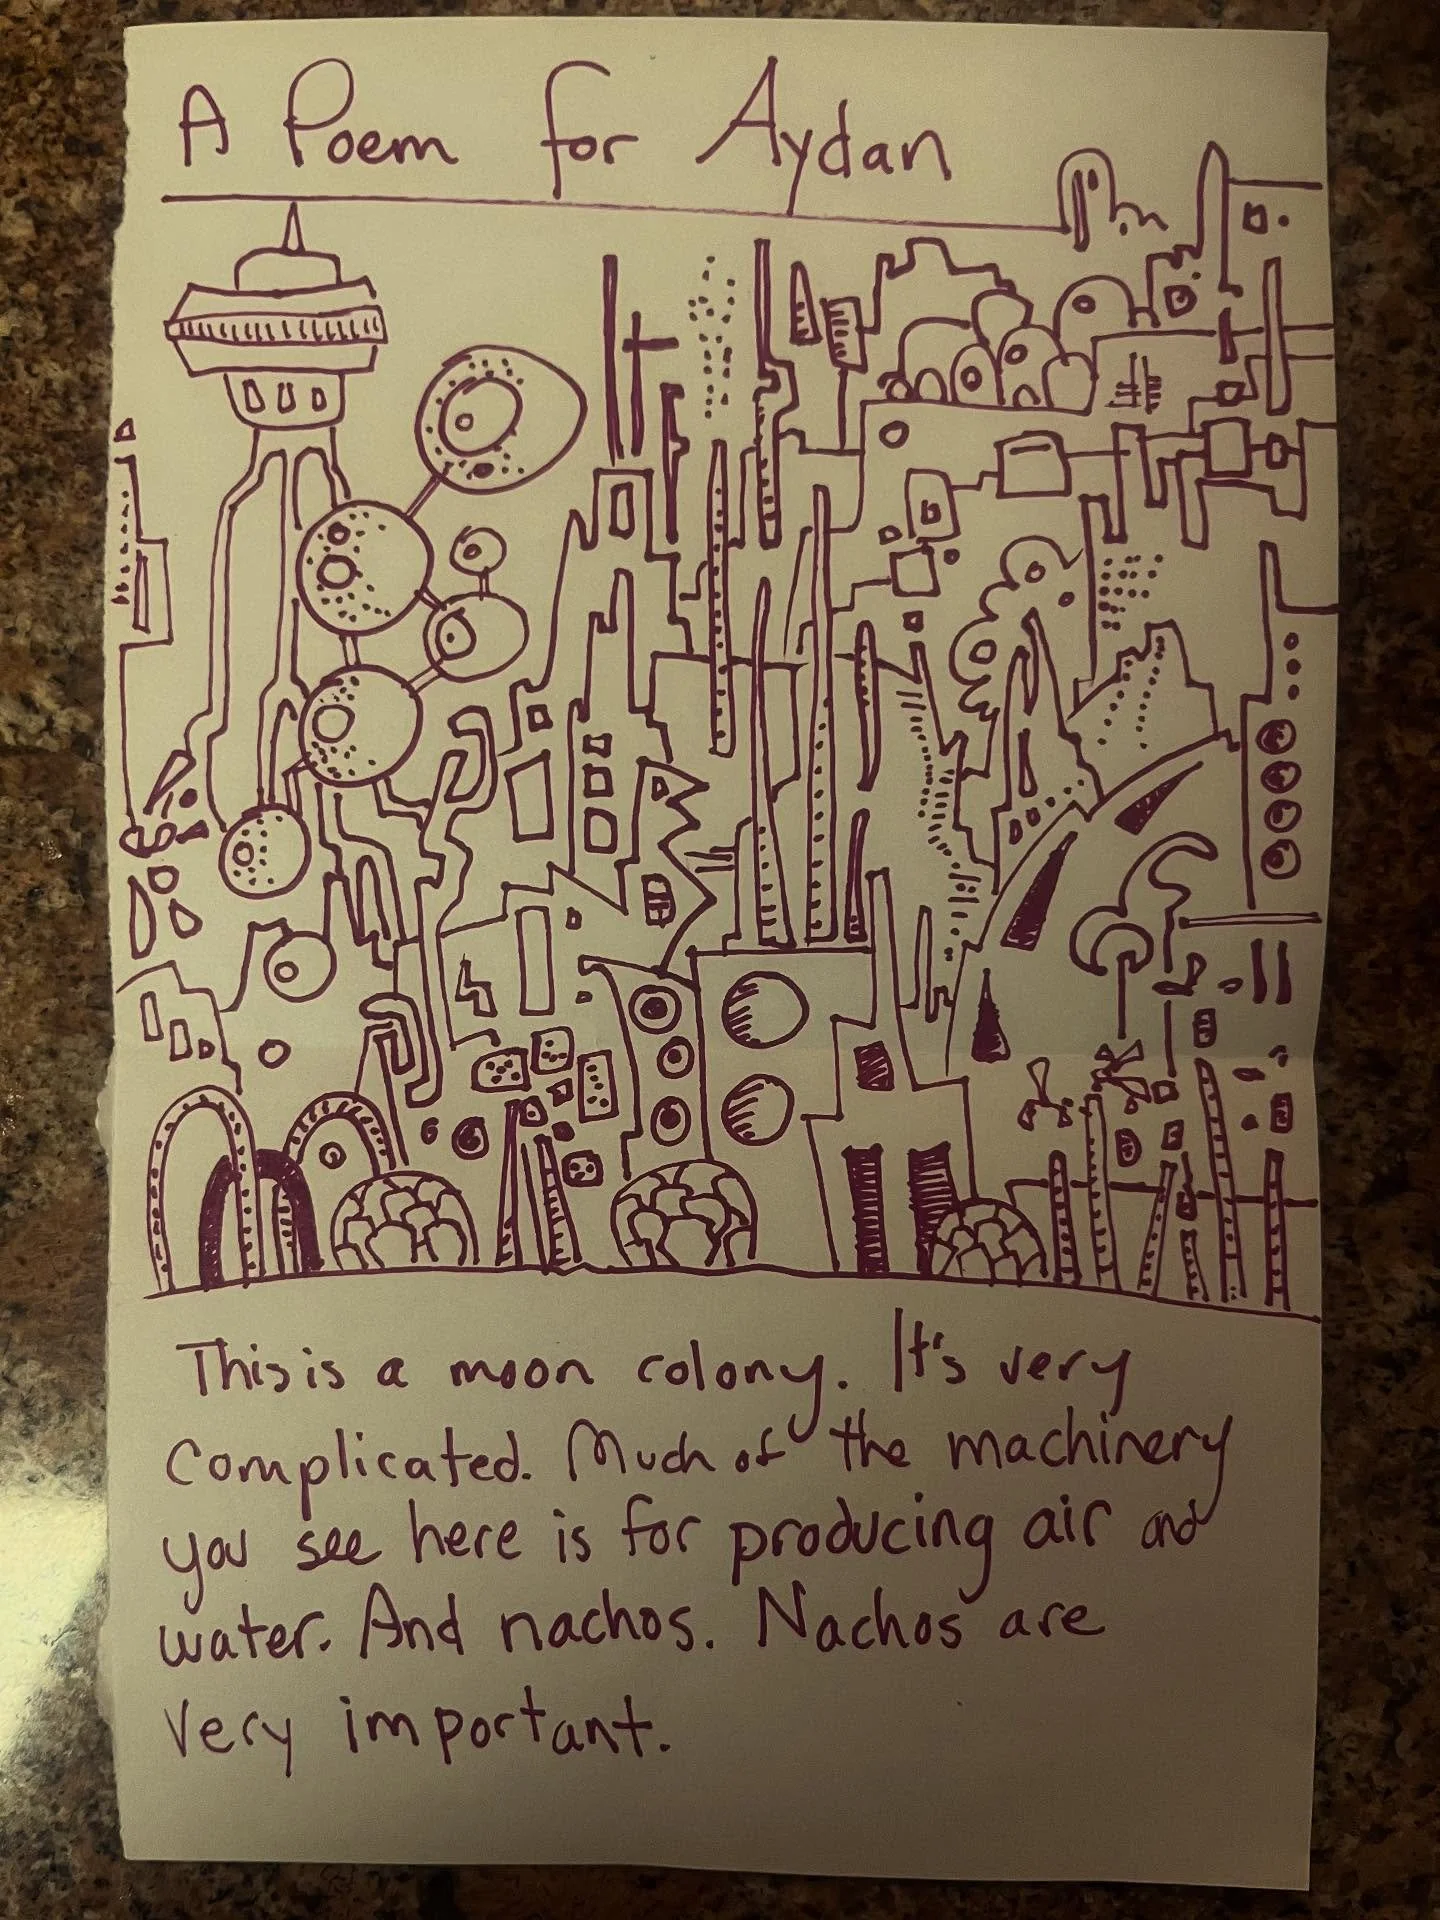 A Poem for Aydan
This is a moon colony. It's very
complicated. Much of the machinery
you see here is for producing air and
water. And nachos. Nachos are
very important.